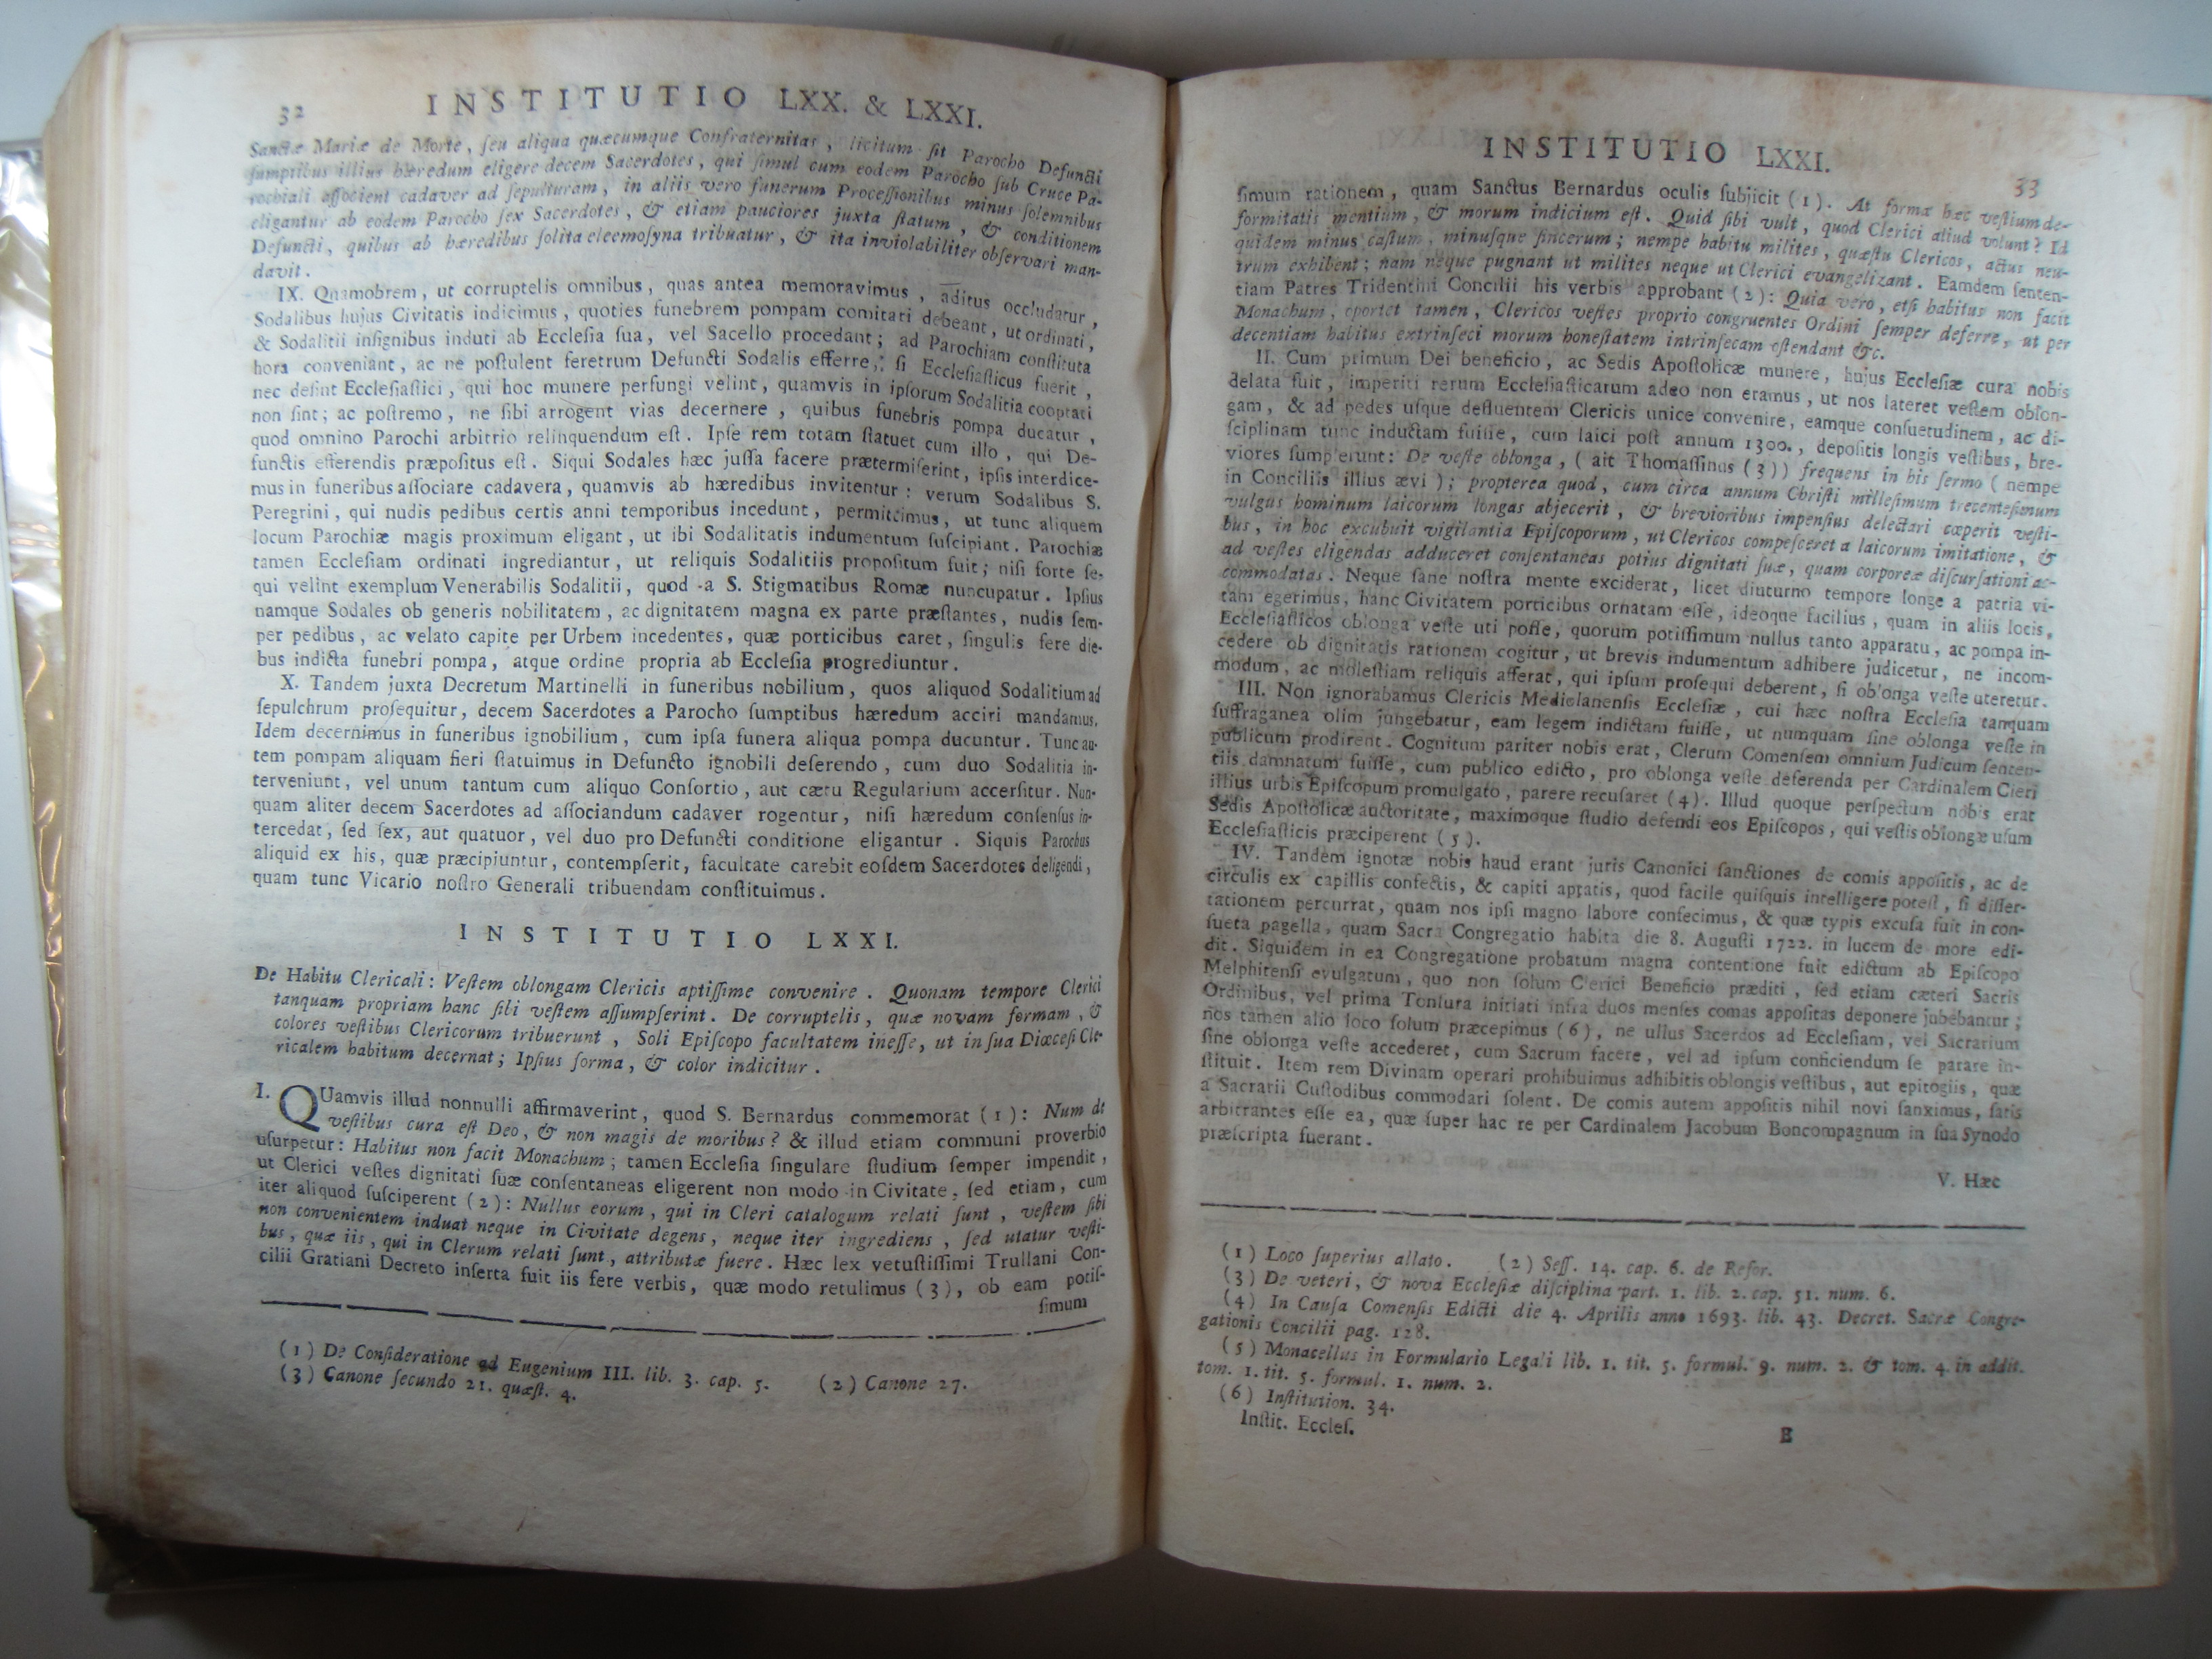 32
INSTITUTIO LXX. & LXXI.
Sanctæ Mariæ de Morte, ſeu aliqua quæcumque Confraternitas, licitum ſit Parocho Defuncti
ſumptibus illius hæredum eligere decem Sacerdotes, qui ſimul cum eodem Parocho ſub Cruce Pa-
rochiali aſſocient cadaver ad ſepulturam, in aliis vero funerum Proceſſionibus minus ſolemnibus
eligantur ab eodem Parocho ſex Sacerdotes, & etiam pauciores juxta ſtatum, & conditionem
Defuncti, quibus ab hæredibus ſolita eleemoſyna tribuatur, & ita inviolabiliter obſervari man-
davit.
IX. Quamobrem, ut corruptelis omnibus, quas antea memoravimus, aditus occludatur,
Sodalibus hujus Civitatis indicimus, quoties funebrem pompam comitari debeant, ut ordinati,
& Sodalitii inſignibus induti ab Eccleſia ſua, vel Sacello procedant; ad Parochiam conſtituta
hora conveniant, ac ne poſtulent feretrum Defuncti Sodalis efferre, ſi Eccleſiaſticus fuerit,
nec deſint Eccleſiaſtici, qui hoc munere perfungi velint, quamvis in ipſorum Sodalitia cooptati
non ſint; ac poſtremo, ne ſibi arrogent vias decernere, quibus funebris pompa ducatur,
quod omnino Parochi arbitrio relinquendum eſt. Ipſe rem totam ſtatuet cum illo, qui De-
functis efferendis præpoſitus eſt. Siqui Sodales hæc juſſa facere prætermiſerint, ipſis interdice-
mus in funeribus aſſociare cadavera, quamvis ab hæredibus invitentur: verum Sodalibus S.
Peregrini, qui nudis pedibus certis anni temporibus incedunt, permittimus, ut tunc aliquem
locum Parochiæ magis proximum eligant, ut ibi Sodalitatis indumentum ſuſcipiant. Parochiæ
tamen Eccleſiam ordinati ingrediantur, ut reliquis Sodalitiis propoſitum fuit; niſi forte ſe-
qui velint exemplum Venerabilis Sodalitii, quod a S. Stigmatibus Romæ nuncupatur. Ipſius
namque Sodales ob generis nobilitatem, ac dignitatem magna ex parte præſtantes, nudis ſem-
per pedibus, ac velato capite per Urbem incedentes, quæ porticibus caret, ſingulis fere die-
bus indicta funebri pompa, atque ordine propria ab Eccleſia progrediuntur.
X. Tandem juxta Decretum Martinelli in funeribus nobilium, quos aliquod Sodalitium ad
ſepulchrum proſequitur, decem Sacerdotes a Parocho ſumptibus hæredum acciri mandamus.
Idem decernimus in funeribus ignobilium, cum ipſa funera aliqua pompa ducuntur. Tunc au-
tem pompam aliquam fieri ſtatuimus in Defuncto ignobili deferendo, cum duo Sodalitia in-
terveniunt, vel unum tantum cum aliquo Conſortio, aut cætu Regularium accerſitur. Nun-
quam aliter decem Sacerdotes ad aſſociandum cadaver rogentur, niſi hæredum conſenſus in-
tercedat, ſed ſex, aut quatuor, vel duo pro Defuncti conditione eligantur. Siquis Parochus
aliquid ex his, quæ præcipiuntur, contempſerit, facultate carebit eoſdem Sacerdotes deligendi,
quam tunc Vicario noſtro Generali tribuendam conſtituimus.
INSTITUTIO LXXI.
De Habitu Clericali: Veſtem oblongam Clericis aptiſſime convenire. Quonam tempore Clerici
tanquam propriam hanc ſibi veſtem aſſumpſerint. De corruptelis, quæ novam formam, &
colores veſtibus Clericorum tribuerunt, Soli Epiſcopo facultatem ineſſe, ut in ſua Diœceſi Cle-
ricalem habitum decernat; Ipſius forma, & color indicitur.
I. QUamvis illud nonnulli affirmaverint, quod S. Bernardus commemorat (1): Num de
veſtibus cura eſt Deo, & non magis de moribus? & illud etiam communi proverbio
uſurpetur: Habitus non facit Monachum; tamen Eccleſia ſingulare ſtudium ſemper impendit,
ut Clerici veſtes dignitati ſuæ conſentaneas eligerent non modo in Civitate, ſed etiam, cum
iter aliquod ſuſciperent (2): Nullus eorum, qui in Cleri catalogum relati ſunt, veſtem ſibi
non convenientem induat neque in Civitate degens, neque iter ingrediens, ſed utatur veſti-
bus, quæ iis, qui in Clerum relati ſunt, attributæ fuere. Hæc lex vetuſtiſſimi Trullani Con-
cilii Gratiani Decreto inſerta fuit iis fere verbis, quæ modo retulimus (3), ob eam potiſ-
ſimum
(1) De Conſideratione ad Eugenium III. lib. 3. cap. 5. (2) Canone 27.
(3) Canone ſecundo 21. quæſt. 4.
INSTITUTIO LXXI.
33
ſimum rationem, quam Sanctus Bernardus oculis ſubjicit (1). At forma hæc veſtium de-
formitatis mentium, & morum indicium eſt. Quid ſibi vult, quod Clerici aliud volunt? Id
quidem minus caſtum, minuſque ſincerum; nempe habitu milites, quæſtu Clericos, actus neu-
trum exhibent; nam neque pugnant ut milites neque ut Clerici evangelizant. Eamdem ſenten-
tiam Patres Tridentini Concilii his verbis approbant (2): Quia vero, etſi habitus non facit
Monachum, oportet tamen, Clericos veſtes proprio congruentes Ordini ſemper deferre, ut per
decentiam habitus extrinſeci morum honeſtatem intrinſecam oſtendant &c.
II. Cum primum Dei beneficio, ac Sedis Apoſtolicæ munere, hujus Eccleſiæ cura nobis
delata fuit, imperiti rerum Eccleſiaſticarum adeo non eramus, ut nos lateret veſtem oblon-
gam, & ad pedes uſque defluentem Clericis unice convenire, eamque conſuetudinem, ac di-
ſciplinam tunc inductam fuiſſe, cum laici poſt annum 1300., depoſitis longis veſtibus, bre-
viores ſumpſerunt: De veſte oblonga, (ait Thomaſſinus (3)) frequens in his ſermo (nempe
in Conciliis illius ævi); propterea quod, cum circa annum Chriſti milleſimum trecenteſimum
vulgus hominum laicorum longas abjecerit, & brevioribus impenſius delectari cæperit veſti-
bus, in hoc excubuit vigilantia Epiſcoporum, ut Clericos compeſceret a laicorum imitatione, &
ad veſtes eligendas adduceret conſentaneas potius dignitati ſuæ, quam corporeæ diſcurſationi ac-
commodatas. Neque ſane noſtra mente exciderat, licet diuturno tempore longe a patria vi-
tam egerimus, hanc Civitatem porticibus ornatam eſſe, ideoque facilius, quam in aliis locis,
Eccleſiaſticos oblonga veſte uti poſſe, quorum potiſſimum nullus tanto apparatu, ac pompa in-
cedere ob dignitatis rationem cogitur, ut brevis indumentum adhibere judicetur, ne incom-
modum, ac moleſtiam reliquis afferat, qui ipſum proſequi deberent, ſi oblonga veſte uteretur.
III. Non ignorabamus Clericis Mediolanenſis Eccleſiæ, cui hæc noſtra Eccleſia tanquam
ſuffraganea olim jungebatur, eam legem indictam fuiſſe, ut numquam ſine oblonga veſte in
publicum prodirent. Cognitum pariter nobis erat, Clerum Comenſem omnium Judicum ſenten-
tiis damnatum fuiſſe, cum publico edicto, pro oblonga veſte deferenda per Cardinalem Cieri
illius urbis Epiſcopum promulgato, parere recuſaret (4). Illud quoque perſpectum nobis erat
Sedis Apoſtolicæ auctoritate, maximoque ſtudio defendi eos Epiſcopos, qui veſtis oblongæ uſum
Eccleſiaſticis præciperent (5).
IV. Tandem ignotæ nobis haud erant juris Canonici ſanctiones de comis appoſitis, ac de
circulis ex capillis confectis, & capiti aptatis, quod facile quiſquis intelligere poteſt, ſi diſſer-
tationem percurrat, quam nos ipſi magno labore confecimus, & quæ typis excuſa fuit in con-
ſueta pagella, quam Sacra Congregatio habita die 8. Auguſti 1722. in lucem de more edi-
dit. Siquidem in ea Congregatione probatum magna contentione fuit edictum ab Epiſcopo
Melphitenſi evulgatum, quo non ſolum Clerici Beneficio præditi, ſed etiam cæteri Sacris
Ordinibus, vel prima Tonſura initiati infra duos menſes comas appoſitas deponere jubebantur;
nos tamen alio loco ſolum præcepimus (6), ne ullus Sacerdos ad Eccleſiam, vel Sacrarium
ſine oblonga veſte accederet, cum Sacrum facere, vel ad ipſum conficiendum ſe parare in-
ſtituit. Item rem Divinam operari prohibuimus adhibitis oblongis veſtibus, aut epitogiis, quæ
a Sacrarii Cuſtodibus commodari ſolent. De comis autem appoſitis nihil novi ſanximus, ſatis
arbitrantes eſſe ea, quæ ſuper hac re per Cardinalem Jacobum Boncompagnum in ſua Synodo
præſcripta fuerant.
V. Hæc
(1) Loco ſuperius allato. (2) Seſſ. 14. cap. 6. de Refor.
(3) De veteri, & nova Eccleſiæ diſciplina part. 1. lib. 2. cap. 51. num. 6.
(4) In Cauſa Comenſis Edicti die 4. Aprilis anno 1693. lib. 43. Decret. Sacræ Congre-
gationis Concilii pag. 128.
(5) Monacellus in Formulario Legali lib. 1. tit. 5. formul. 9. num. 2. & tom. 4. in addit.
tom. 1. tit. 5. formul. 1. num. 2.
(6) Inſtitution. 34.
Inſtit. Eccleſ.
E